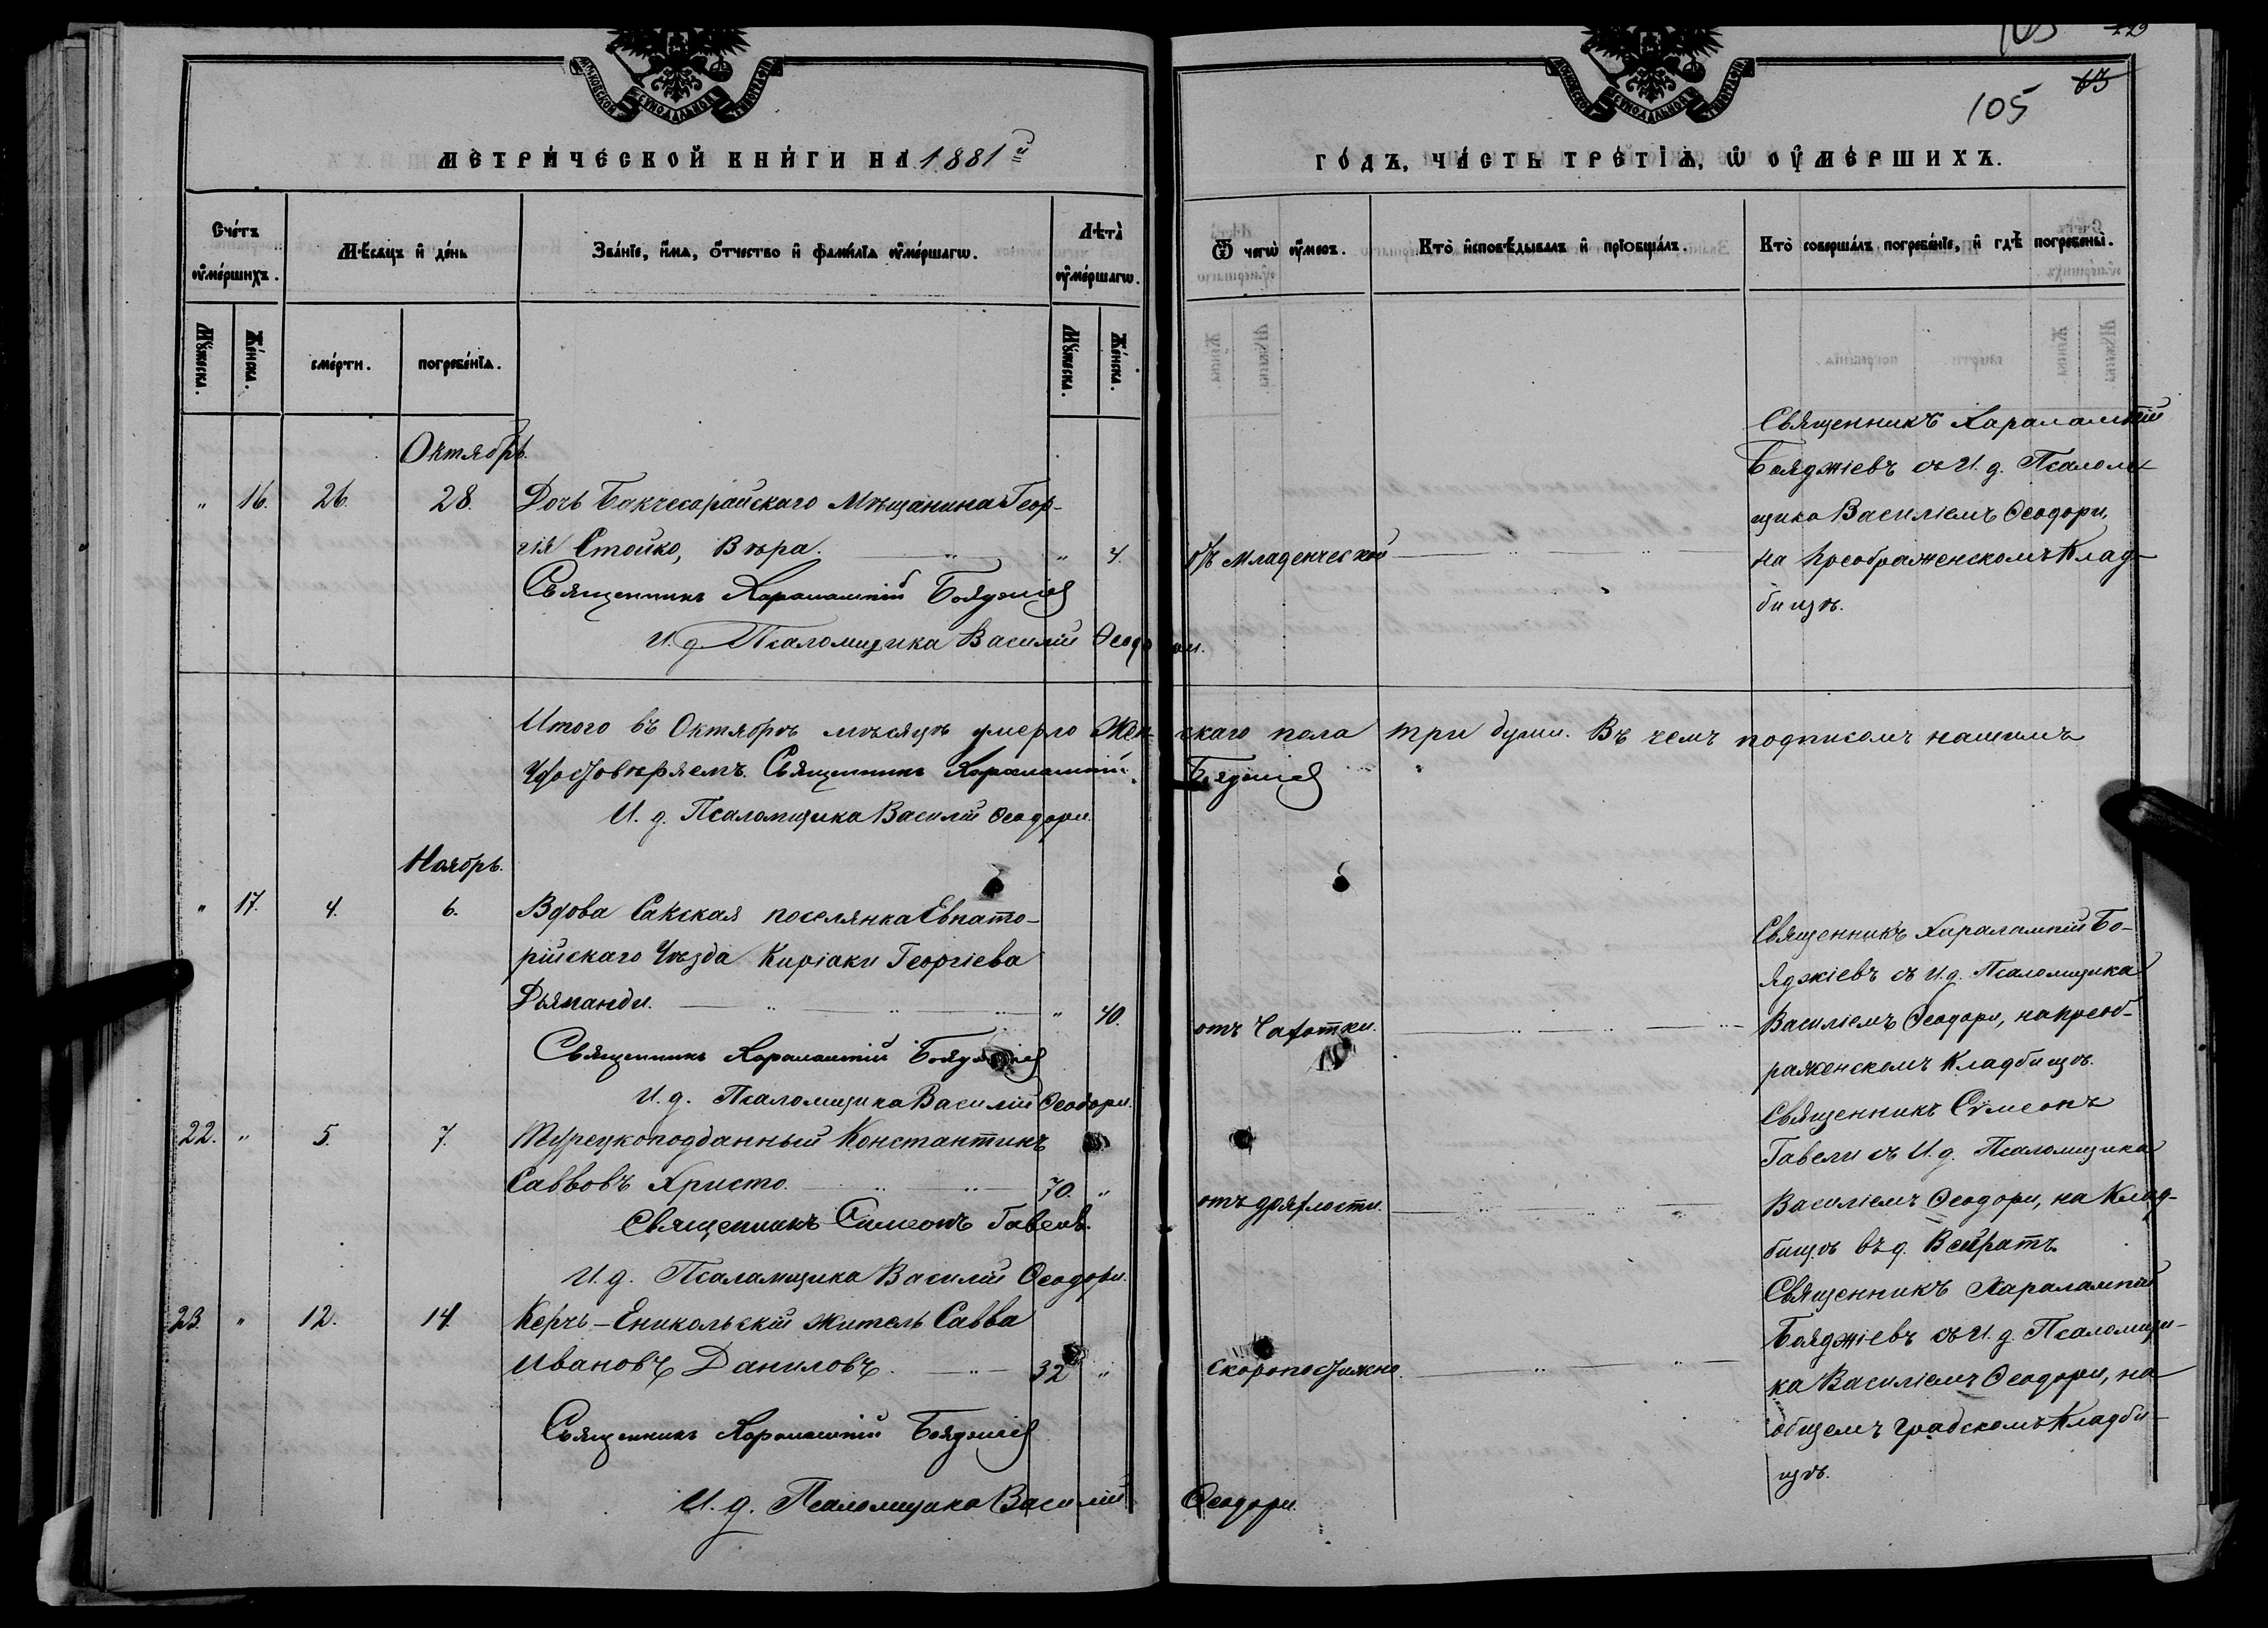 МОСКОВСКОЙ СѴНОДАЛЬНОЙ ТИПОГРАФІИ
МОСКОВСКОЙ СѴНОДАЛЬНОЙ ТИПОГРАФІИ
105
105
МЕТРИ́ЧЕСКОЙ КНИ́ГИ НА 1881й
ГО́ДЪ, ЧА́СТЬ ТРЕ́ТІѦ, Ѡ ОУ҆МЕ́РШИХЪ.
Сче́тъ оу҆ме́ршихъ.
Мѣ́сѧцъ и҆ де́нь
Зва́нїе, и҆́мѧ, ѻ҆́тчество и҆ фамі́лїѧ оу҆ме́ршагѡ.
Лѣта̀ оу҆ме́ршагѡ.
Ѿ чегѡ̀ оу҆́меръ.
Кто̀ и҆сповѣ́дывалъ и҆ прїѡбща́лъ.
Кто̀ соверша́лъ погребе́нїе, и҆ гдѣ̀ погребены̀.
Мꙋ́жеска.
Же́нска.
сме́рти.
погребе́нїѧ.
Мꙋ́жеска.
Же́нска.
Октябрь.
" 16. 26. 28. Дочь Бакчесарайскаго Мѣщанина Геор-
гія Стойко, Вѣра. " " 4.
Священникъ Харалампій Бояджіев
И. д. Псаломщика Василій Ѳеодори.
отъ младенческой
Священникъ Харалампій
Бояджіевъ съ И. д. Псалом-
щика Василіемъ Ѳеодори,
на Преображенскомъ Клад-
бищѣ.
Итого въ Октябрѣ мѣсяцѣ умерло Женскаго пола три души. Въ чемъ подписомъ нашимъ
Удостовѣряемъ. Священникъ Харалампій Бояджіев
И. д. Псаломщика Василій Ѳеодори.
Ноябрь.
" 17. 4. 6. Вдова Сакская поселянка Евпато-
рійскаго Уѣзда Киріаки Георгіева
Дьяманди. " 40.
Священникъ Харалампій Бояджіев
И. д. Псаломщика Василій Ѳеодори.
отъ Чахотки.
Священникъ Харалампій Бо-
яджіевъ съ И. д. Псаломщика
Василіемъ Ѳеодори, на Преоб-
раженскомъ Кладбищѣ.
22. " 5. 7. Турецкоподданный Константинъ
Саввовъ Христо. 70. "
Священникъ Симеонъ Гавели.
И. д. Псаламщика Василій Ѳеодори.
отъ дряхлости.
Священникъ Симеонъ
Гавели съ И. д. Псаломщика
Василіемъ Ѳеодори, на Клад-
бищѣ въ д.
23. " 12. 14. Керчь-Еникольскій житель Савва
Ивановъ Даниловъ. 32 "
Священникъ Харалампій Бояджіев
И. д. Псаломщика Василій Ѳеодори.
скоропостижно.
Священникъ Харалампій
Бояджіевъ съ И. д. Псаломщи-
ка Василіемъ Ѳеодори, на
общемъ градскомъ Кладби-
щѣ.